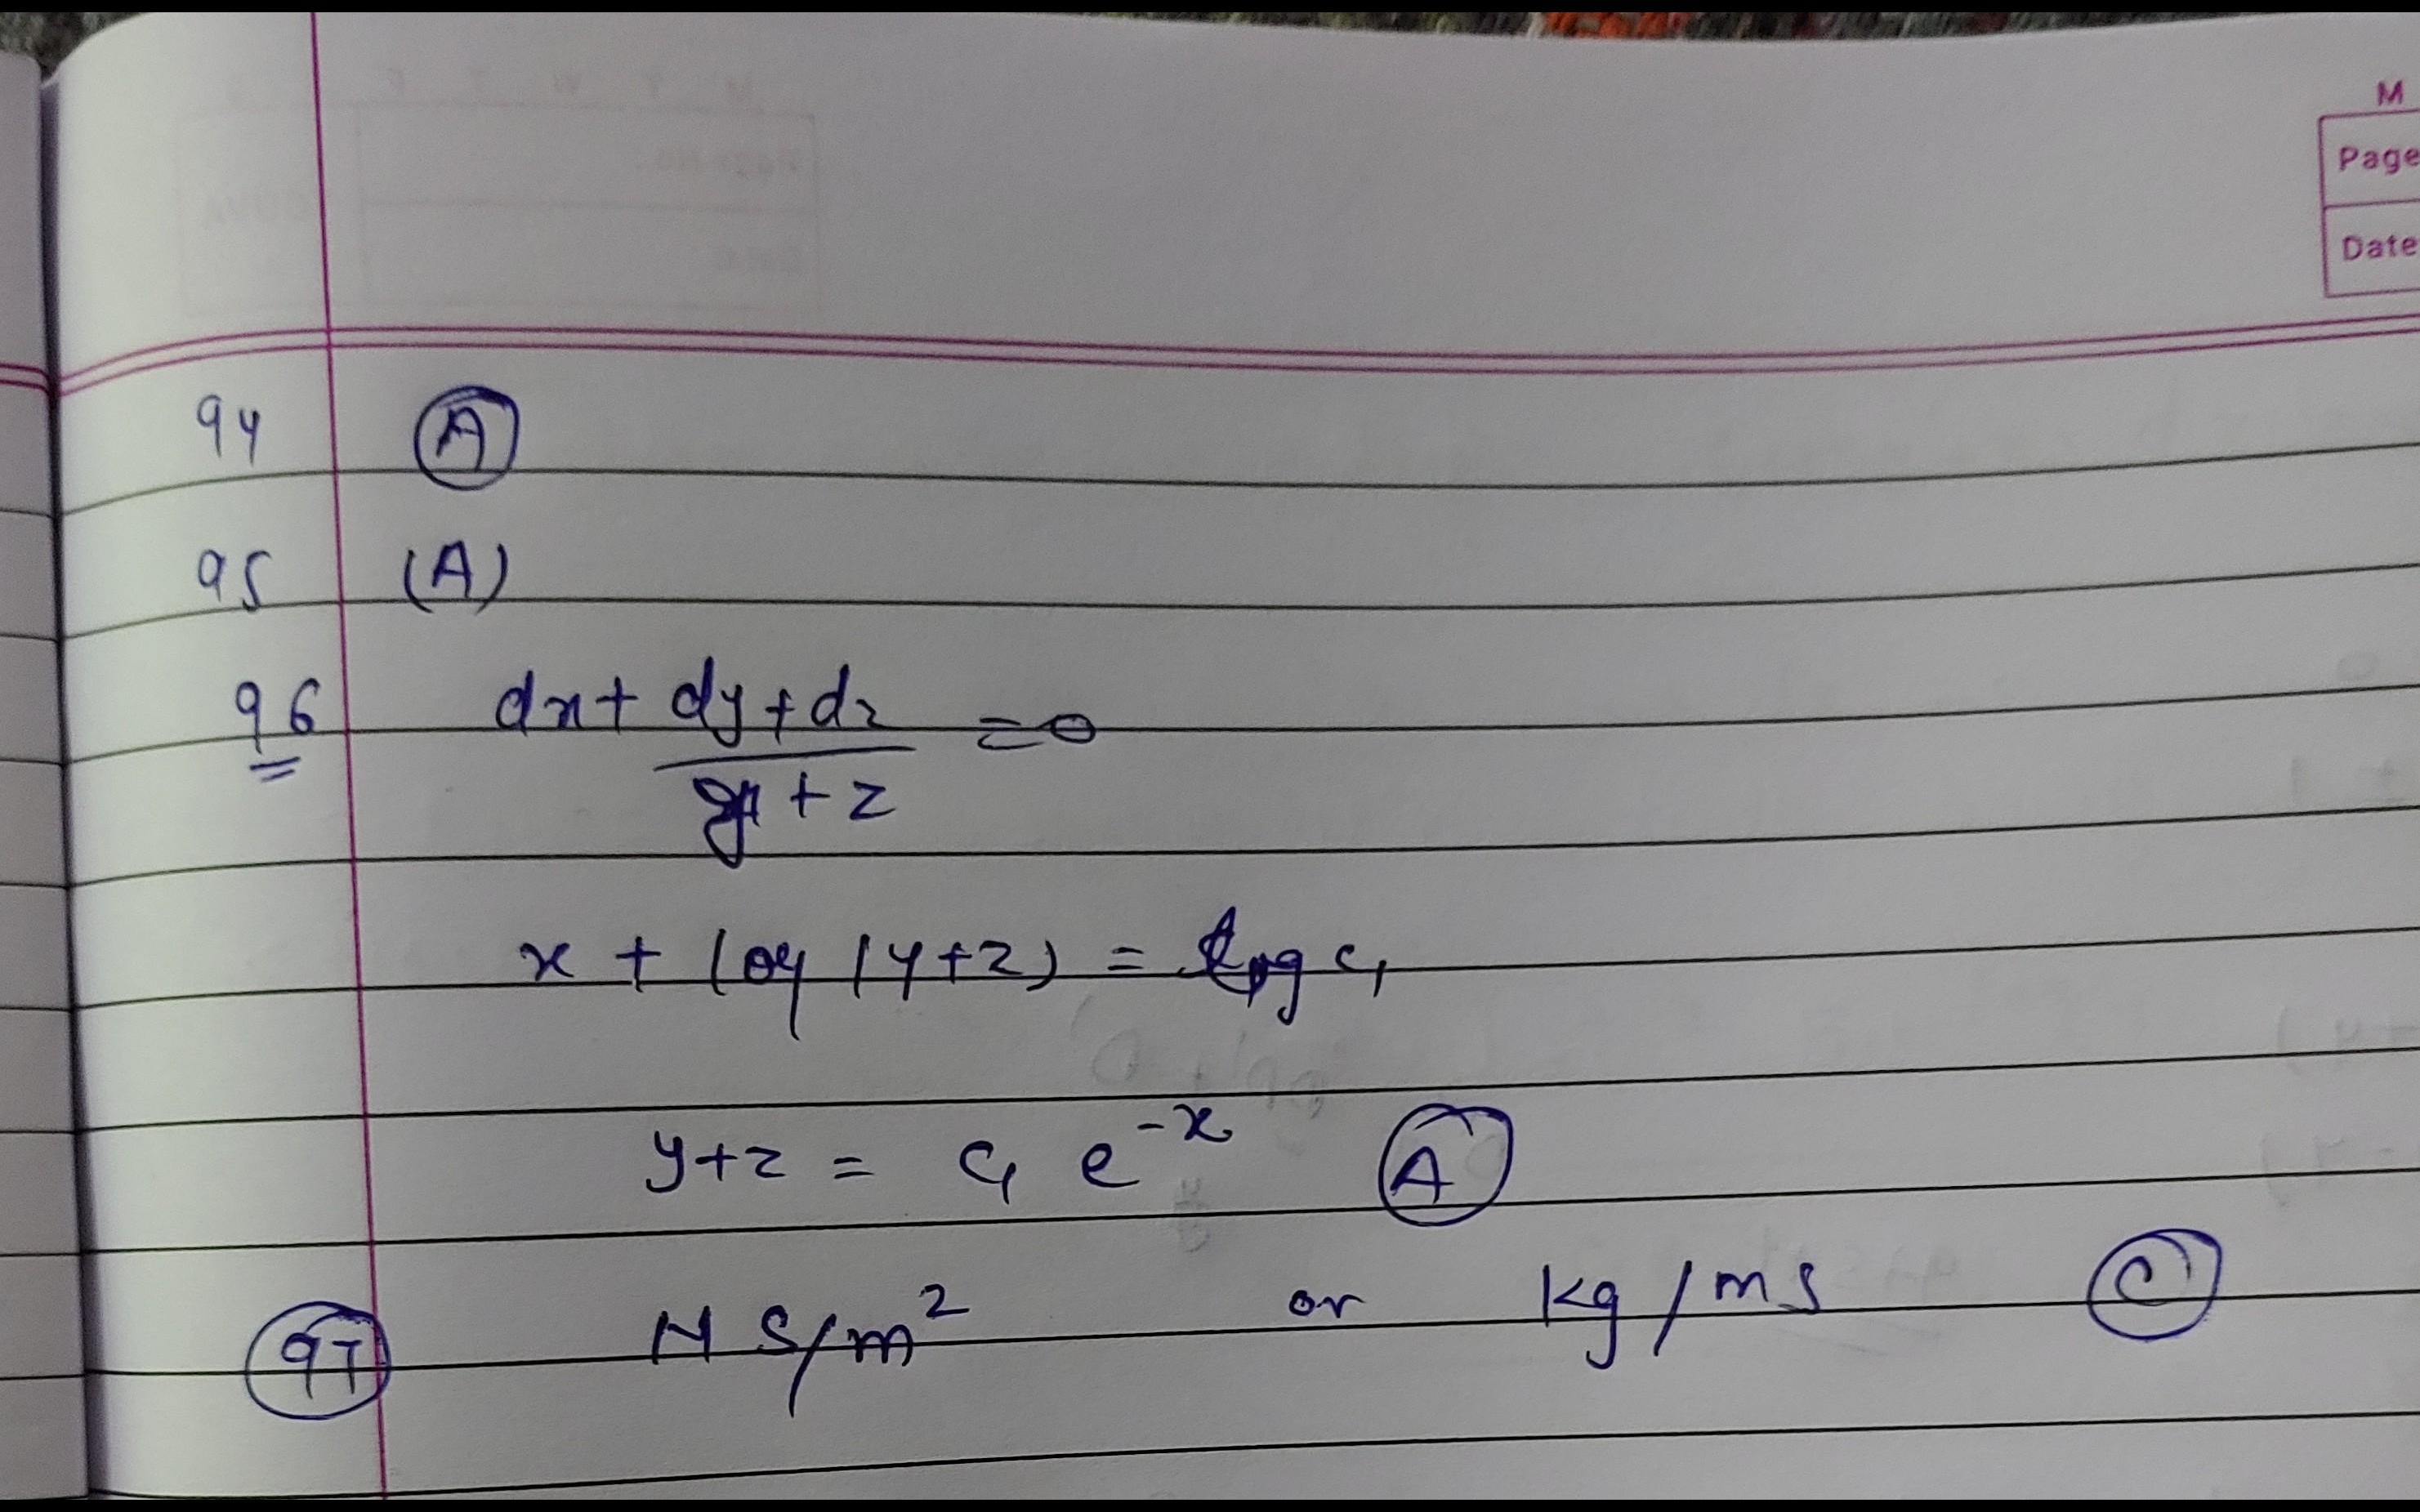 M
Page
Date
94 (A)
95 (A)
96 dx + dy+dz / y+z = 0
x + log (y+z) = log c₁
y+z = c₁ e^-x (A)
97 N S/m² or kg/ms (C)